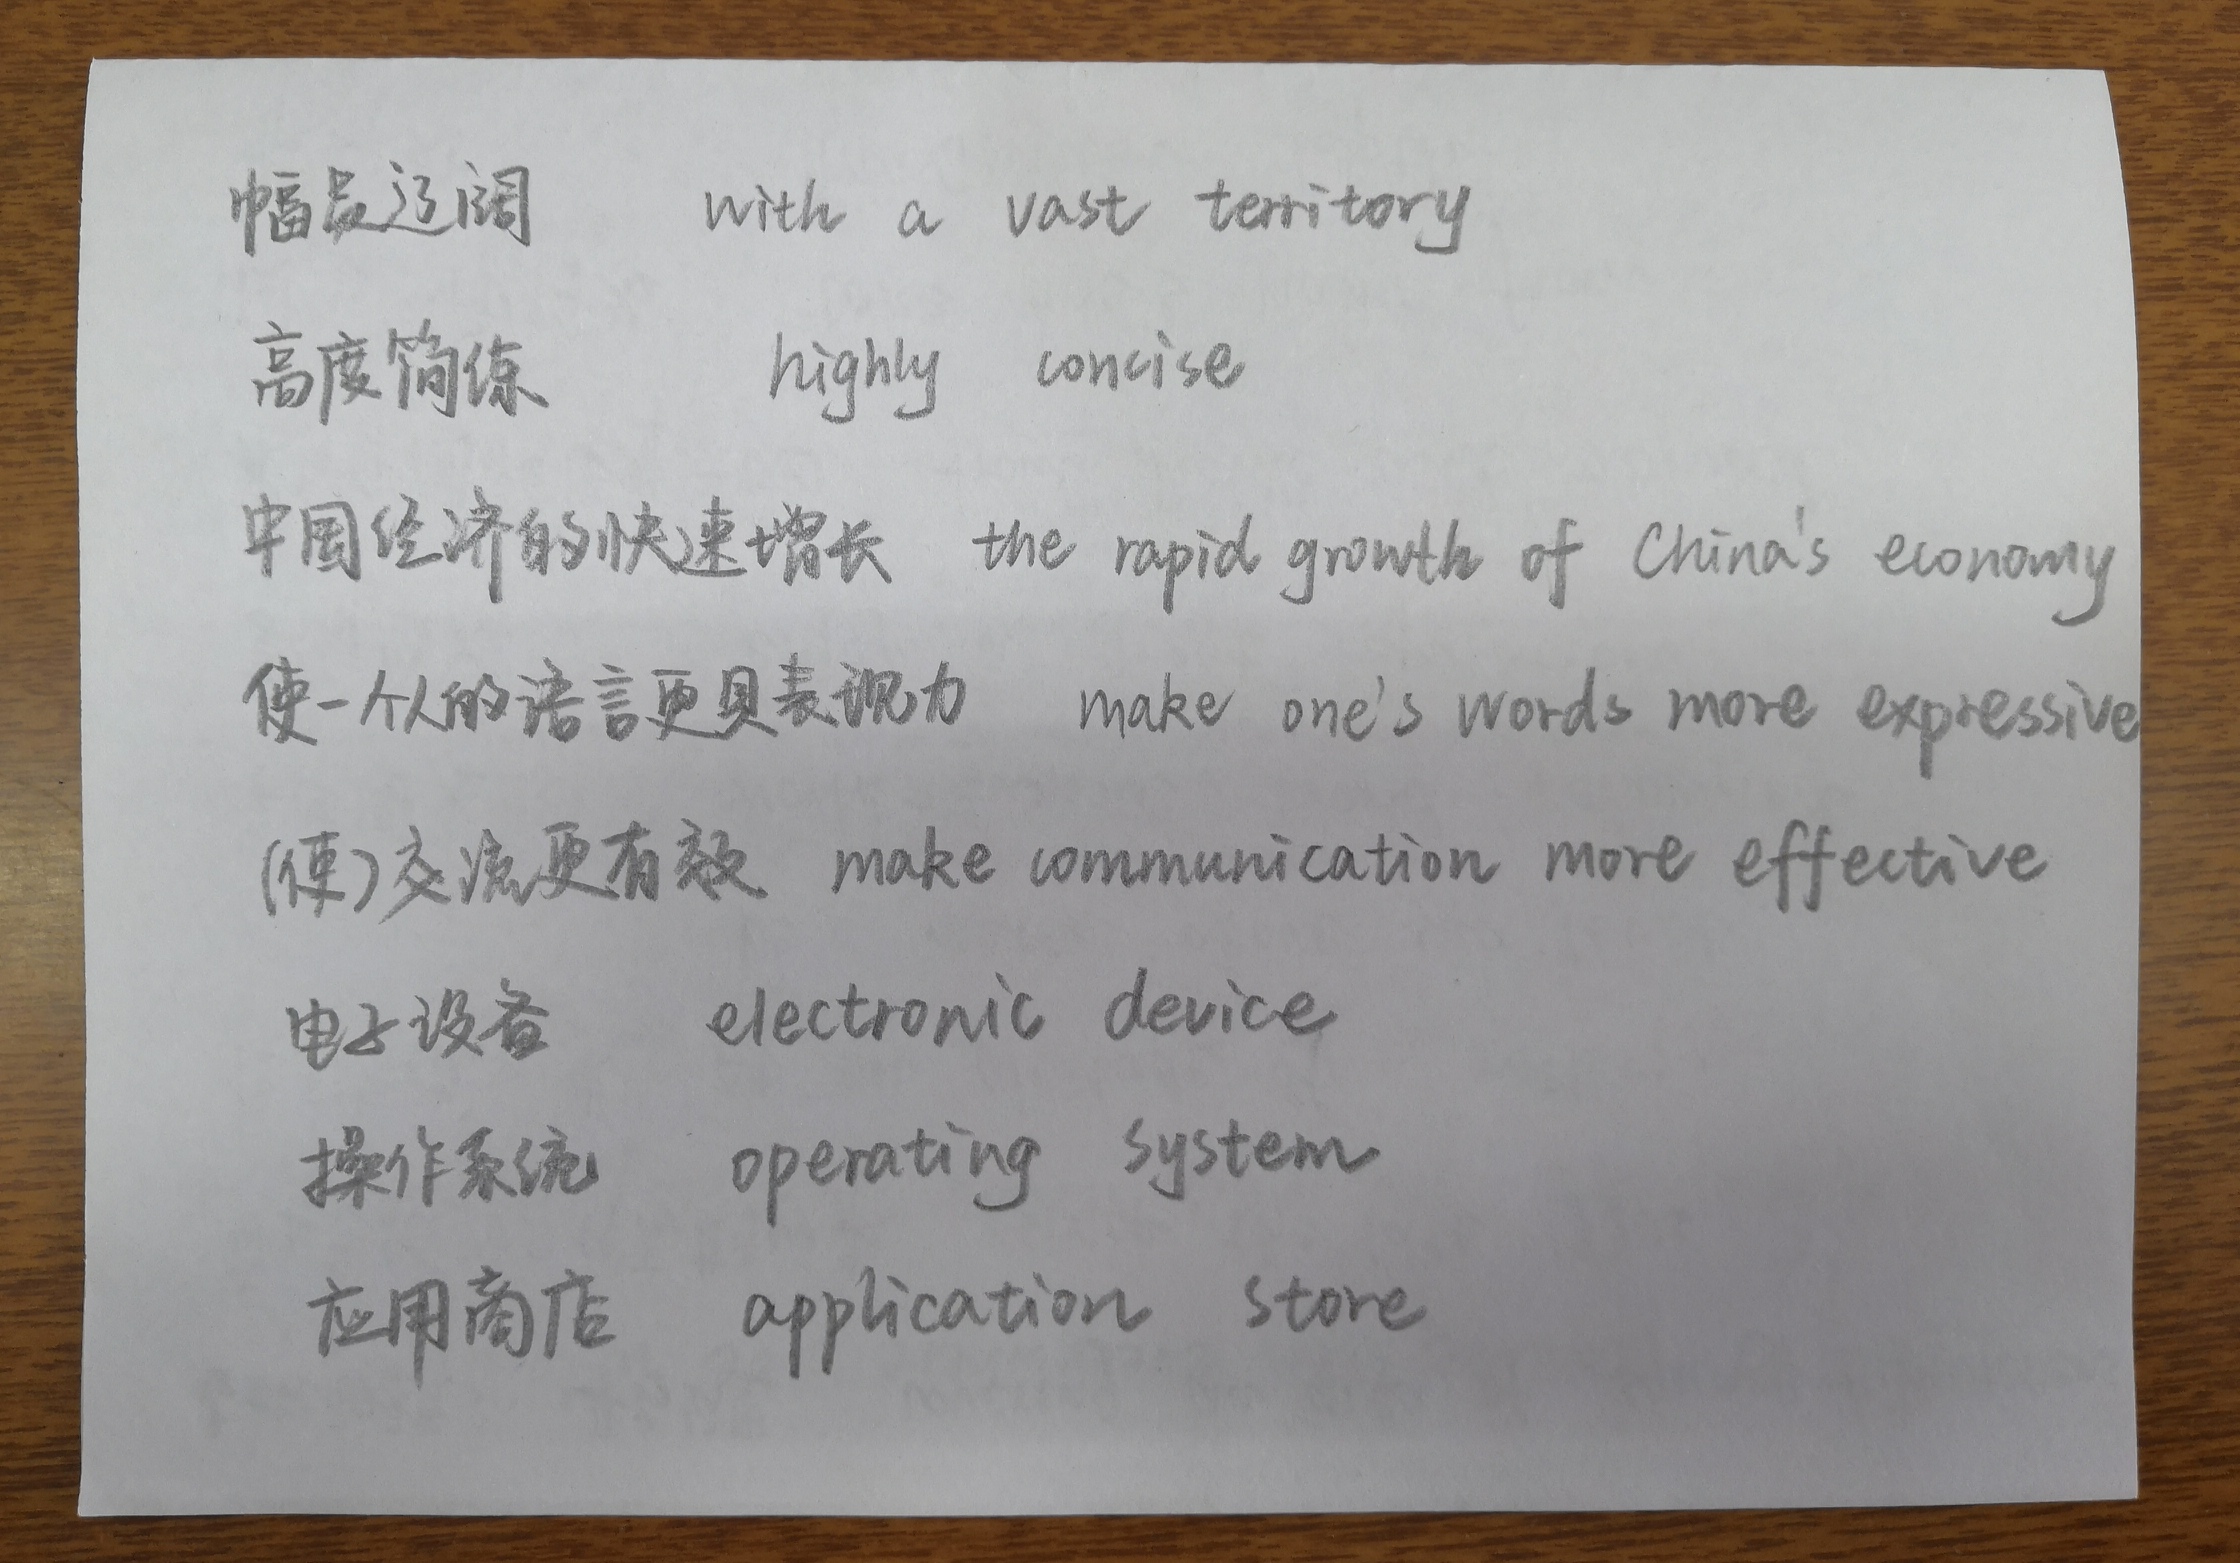 幅员辽阔 with a vast territory
高度简练 highly concise
中国经济的快速增长 the rapid growth of China's economy
使一个人的语言更具表现力 make one's words more expressive
(使)交流更有效 make communication more effective
电子设备 electronic device
操作系统 operating system
应用商店 application store